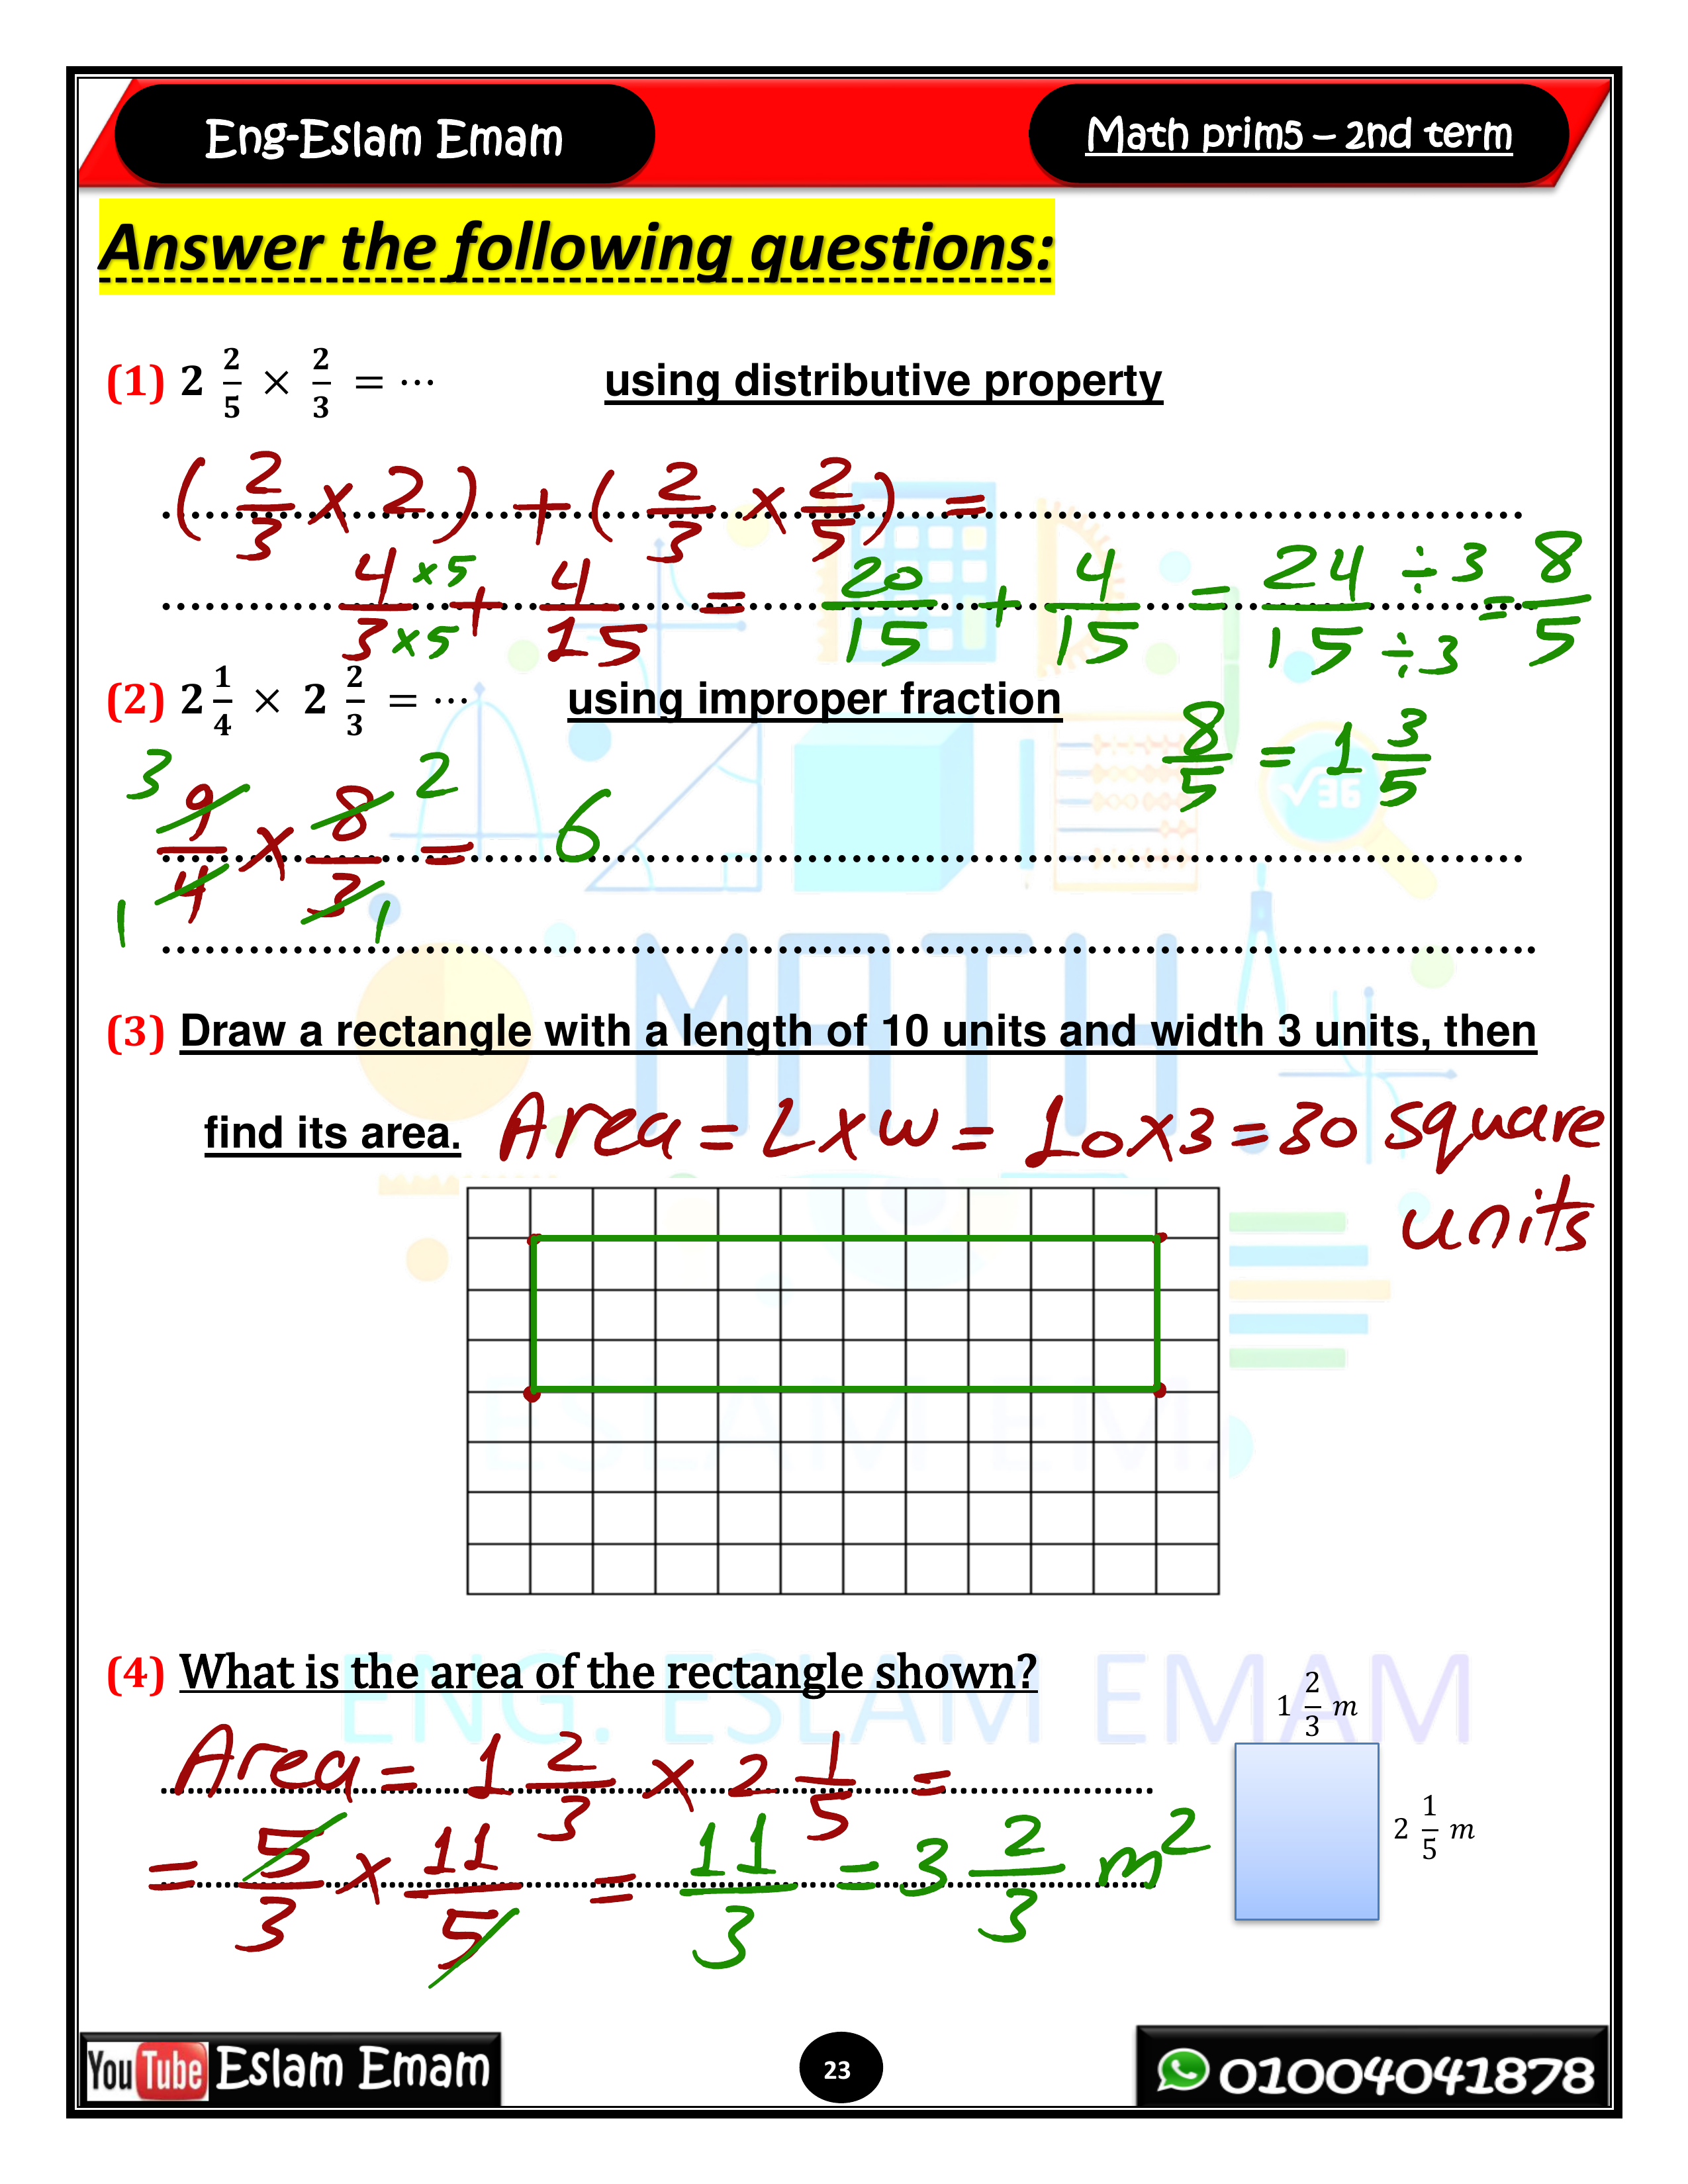 Eng-Eslam Emam
Math prim5 – 2nd term
Answer the following questions:
(1) 2 2/5 × 2/3 = ⋯ using distributive property
( 2/3 × 2 ) + ( 2/3 × 2/5 ) =
4/3 ×5/×5 + 4/15 = 20/15 + 4/15 = 24/15 ÷3/÷3 = 8/5
(2) 2 1/4 × 2 2/3 = ⋯ using improper fraction
8/5 = 1 3/5
3 2
9/4 × 8/3 = 6
1 1
MATH
√36
(3) Draw a rectangle with a length of 10 units and width 3 units, then
find its area. Area = L × w = 10 × 3 = 30 square
units
ESLAM EMA
(4) What is the area of the rectangle shown?
ENG. ESLAM EMAM
1 2/3 m
Area = 1 2/3 × 2 1/5 =
2 1/5 m
= 5/3 × 11/5 = 11/3 = 3 2/3 m²
YouTube Eslam Emam
23
01004041878